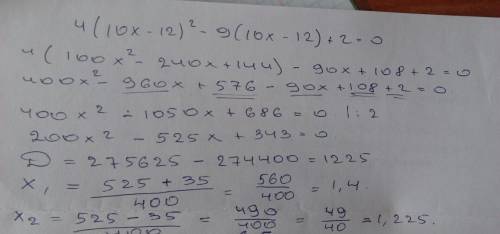 4(10x-12)² - 9(10x-12)+2=0
4(100x² - 240x+144) - 90x+108+2=0
400x² - 960x + 576 - 90x+108+2=0
400x² - 1050x + 686 = 0 |:2
200x² - 525x + 343=0
D = 275625 - 274400 = 1225
X₁ = (525 + 35)/400 = 560/400 = 1,4.
X₂ = (525 - 35)/400 = 490/400 = 49/40 = 1,225.